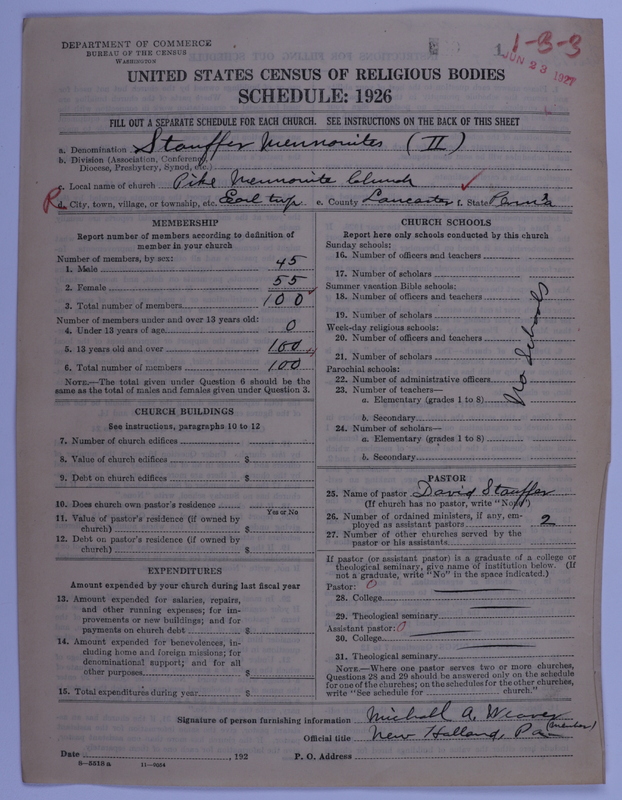 DEPARTMENT OF COMMERCE
BUREAU OF THE CENSUS
WASHINGTON
1-B-3
JUN 23 1927
UNITED STATES CENSUS OF RELIGIOUS BODIES
SCHEDULE: 1926
FILL OUT A SEPARATE SCHEDULE FOR EACH CHURCH. SEE INSTRUCTIONS ON THE BACK OF THIS SHEET
a. Denomination Stauffer Mennonites (II)
b. Division (Association, Conference,
Diocese, Presbytery, Synod, etc.)
c. Local name of church Pike Mennonite Church
d. City, town, village, or township, etc. Earl twp. e. County Lancaster f. State Penn'a
MEMBERSHIP
Report number of members according to definition of
member in your church
Number of members, by sex:
1. Male 45
2. Female 55
3. Total number of members 100
Number of members under and over 13 years old:
4. Under 13 years of age 0
5. 13 years old and over 100
6. Total number of members 100
NOTE.—The total given under Question 6 should be the
same as the total of males and females given under Question 3.
CHURCH BUILDINGS
See instructions, paragraphs 10 to 12
7. Number of church edifices
8. Value of church edifices $
9. Debt on church edifices $
10. Does church own pastor's residence
Yes or No
11. Value of pastor's residence (if owned by
church) $
12. Debt on pastor's residence (if owned by
church) $
EXPENDITURES
Amount expended by your church during last fiscal year
13. Amount expended for salaries, repairs,
and other running expenses; for im-
provements or new buildings; and for
payments on church debt $
14. Amount expended for benevolences, in-
cluding home and foreign missions; for
denominational support; and for all
other purposes $
15. Total expenditures during year $
CHURCH SCHOOLS
Report here only schools conducted by this church
Sunday schools:
16. Number of officers and teachers
17. Number of scholars
Summer vacation Bible schools:
18. Number of officers and teachers
19. Number of scholars
Week-day religious schools:
20. Number of officers and teachers
21. Number of scholars
Parochial schools:
22. Number of administrative officers
23. Number of teachers—
a. Elementary (grades 1 to 8)
b. Secondary
24. Number of scholars—
a. Elementary (grades 1 to 8)
b. Secondary
No Schools
PASTOR
25. Name of pastor David Stauffer
(If church has no pastor, write "None")
26. Number of ordained ministers, if any, em-
ployed as assistant pastors 2
27. Number of other churches served by the
pastor or his assistants
If pastor (or assistant pastor) is a graduate of a college or
theological seminary, give name of institution below. (If
not a graduate, write "No" in the space indicated.)
Pastor: 0
28. College
29. Theological seminary
Assistant pastor: 0
30. College
31. Theological seminary
NOTE.—Where one pastor serves two or more churches,
Questions 28 and 29 should be answered only on the schedule
for one of the churches; on the schedules for the other churches,
write "See schedule for church."
Signature of person furnishing information Michall A. Weaver
(member)
Official title New Holland, Pa
Date , 192 P. O. Address
8—5518a 11—9054